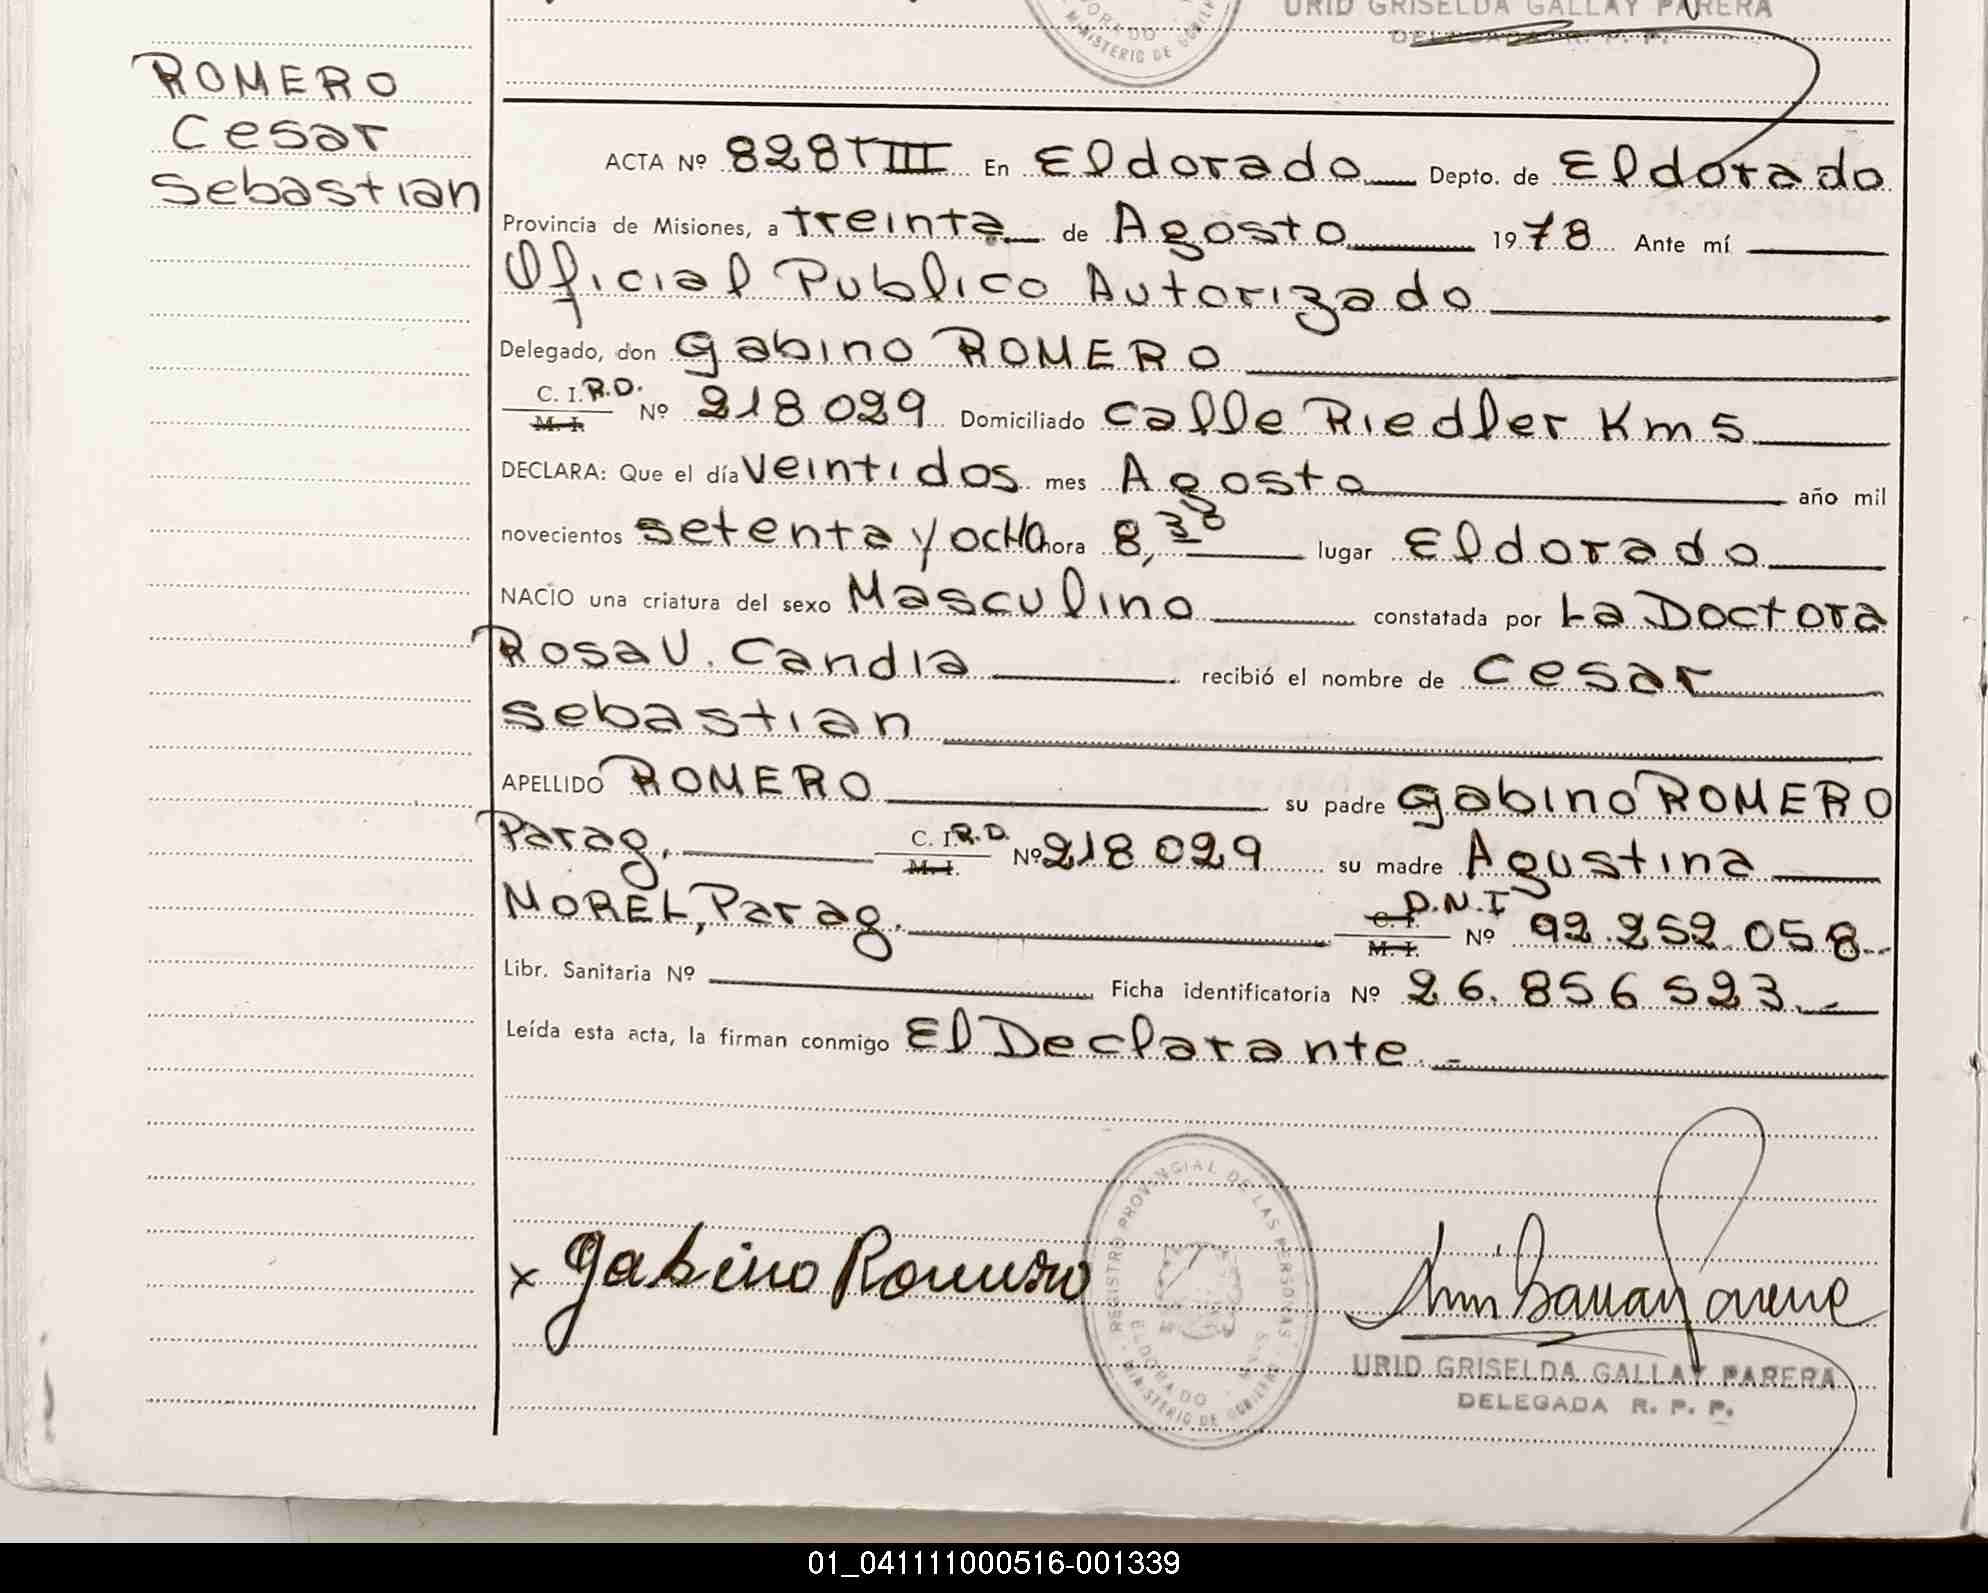 URID GRISELDA GALLAY PARERA
DELEGADA R. P. P.
ELDORADO
MINISTERIO DE GOBIERNO
ROMERO
Cesar
Sebastian
ACTA Nº 828 T III En Eldorado Depto. de Eldorado
Provincia de Misiones, a treinta de Agosto 1978 Ante mí
Oficial Publico Autorizado
Delegado, don Gabino ROMERO
C. I. R.D.
M. I. Nº 218 029 Domiciliado Calle Riedler Km 5
DECLARA: Que el día veintidos mes Agosto año mil
novecientos setenta y ocho hora 8,30 lugar Eldorado
NACIO una criatura del sexo Masculino constatada por La Doctora
Rosa V. Candia recibió el nombre de Cesar
Sebastian
APELLIDO ROMERO su padre Gabino ROMERO
Parag. C. I. R.D. M. I. Nº 218 029 su madre Agustina
MOREL, Parag. C. I. M. I. D.N.I Nº 92.252.058
Libr. Sanitaria Nº Ficha identificatoria Nº 26.856 523.-
Leída esta acta, la firman conmigo El Declarante.-
x Gabino Romero
REGISTRO PROVINCIAL DE LAS PERSONAS
ELDORADO
MINISTERIO DE GOBIERNO
URID GRISELDA GALLAY PARERA
DELEGADA R. P. P.
01_041111000516-001339